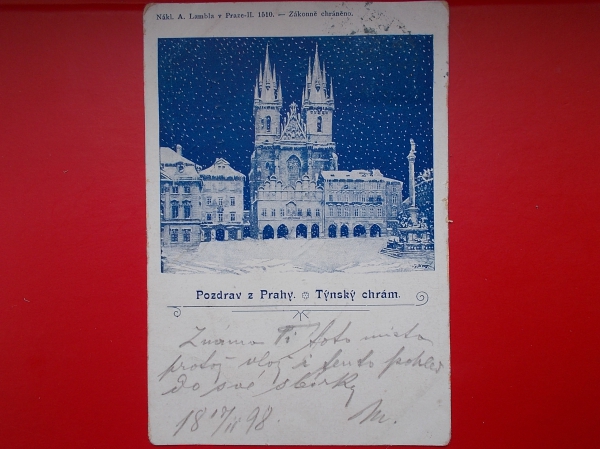 Nákl. A. Lambla v Praze-II. 1510. — Zákonně chráněno.
Pozdrav z Prahy. Týnský chrám.
Známo Ti toto místo
protož vlož i tento pohled
do své sbírky
18 17/II 98. M.